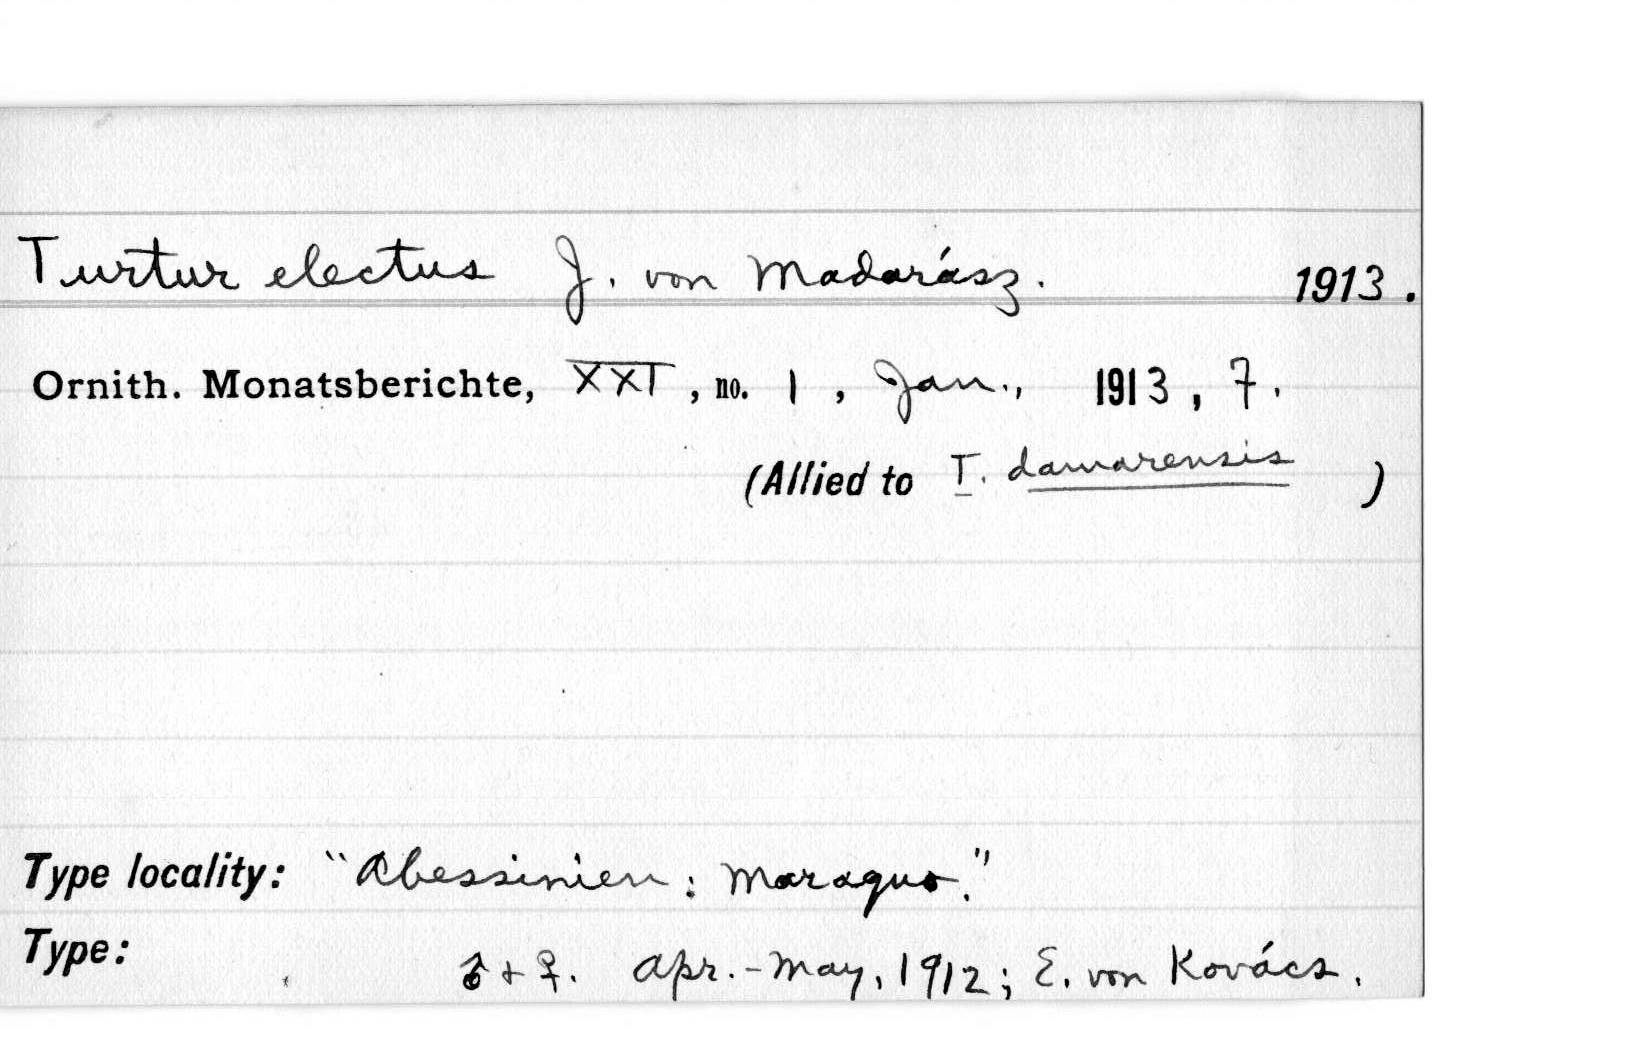 Turtur electus J. von Madarász. 1913.
Ornith. Monatsberichte, XXI, no. 1, Jan., 1913, 7.
(Allied to T. damarensis)
Type locality: "Abessinien: Maraquo."
Type: ♂ + ♀. Apr.-May, 1912; E. von Kovács.